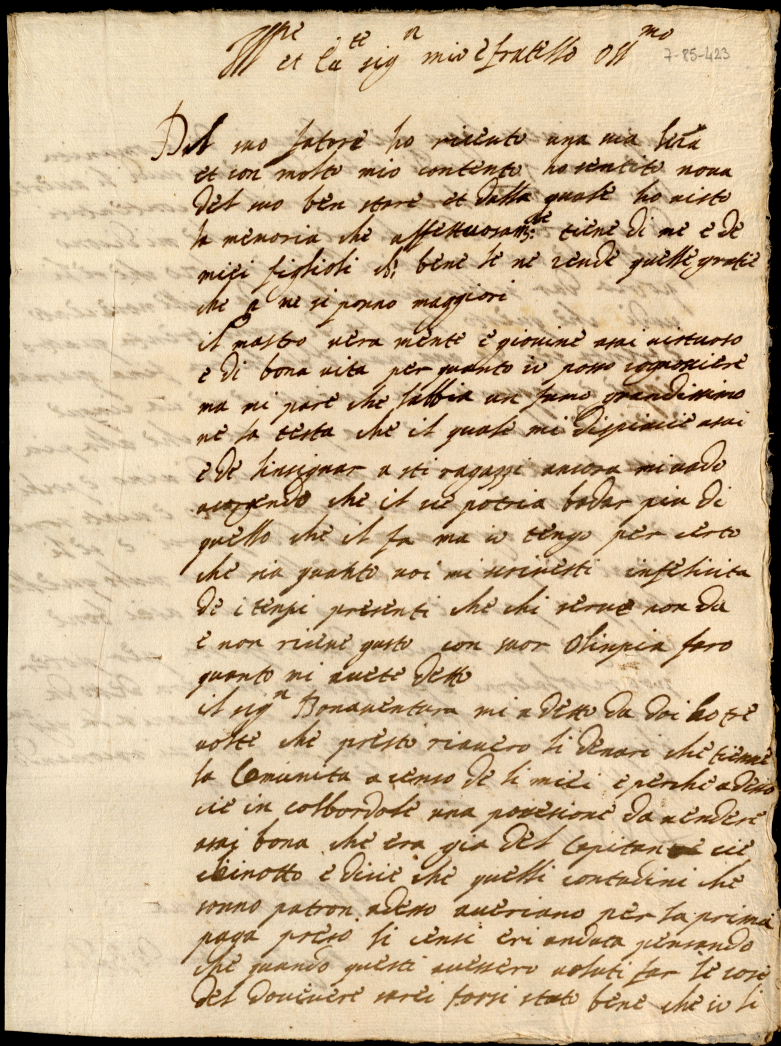 Ill.re et Cla.te sig.r mio e fratello oss.mo
7-85-423
Dal suo fatore ho riceuto una sua letra
et con molto mio contento ho sentito nova
del suo ben stare et dalla quale ho visto
la memoria che affettuosam.te tiene di me e de
miei figlioli che bene se ne rende quelle gratie
che p ne si ponno maggiori
il mastro vera mente e giovine asai virtuoso
e di bona vita per quanto io posso cognosciere
ma mi pare che habbia un fumo grandissimo
ne la testa che il quale mi dispiacie asai
e de linsignar a sti ragazzi ancora mi vado
acorgendo che il sie potria badar piu di
quello che il fa ma io tengo per certo
che sia quanto voi mi scrivesti infelicita
de i tenpi presenti che chi serve non da
e non riceve gusto con suor Olinpia faro
quanto mi avete detto
il sig.r Bonaventura mi a detto da doi ho tre
volte che presto riavero li denari che tienne
la Comunita a censo de li miei e perche adesso
cie in colbordolo una posesione da vendere
asai bona che era gia del Capitan cie
e dicie che quelli contadini che
sonno patron adesso averiano per la prima
paga preso li censi eri andata pensando
che quando questi avessero voluti far le cose
del dovevere sarei forsi stato bene che io li